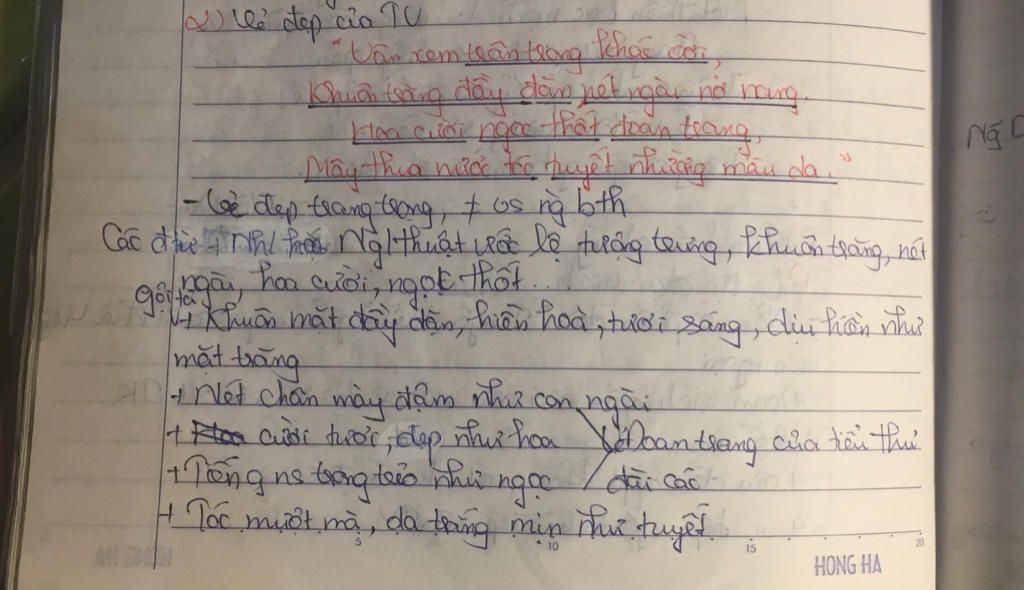 2) Vẻ đẹp của TV
"Vân xem trân trọng khác vời,
Khuôn trăng đầy đặn nét ngài nở nang.
Hoa cười ngọc thốt đoan trang,
Mây thua nước tóc tuyết nhường màu da."
- Vẻ đẹp trang trọng, ≠ vs ng bth
Các từ + Nghệ thuật ước lệ tượng trưng, khuôn trăng, nét
ngài, hoa cười, ngọc thốt...
gợi tả
→ Khuôn mặt đầy đặn, hiền hoà, tươi sáng, dịu hiền như
mặt trăng
+ Nét chân mày đậm như con ngài
+ cười tươi, đẹp như hoa Đoan trang của tiểu thư
+ Tiếng ns trong trẻo như ngọc đài các
+ Tóc mượt mà, da trắng mịn như tuyết
5 10 15 20
HONG HA